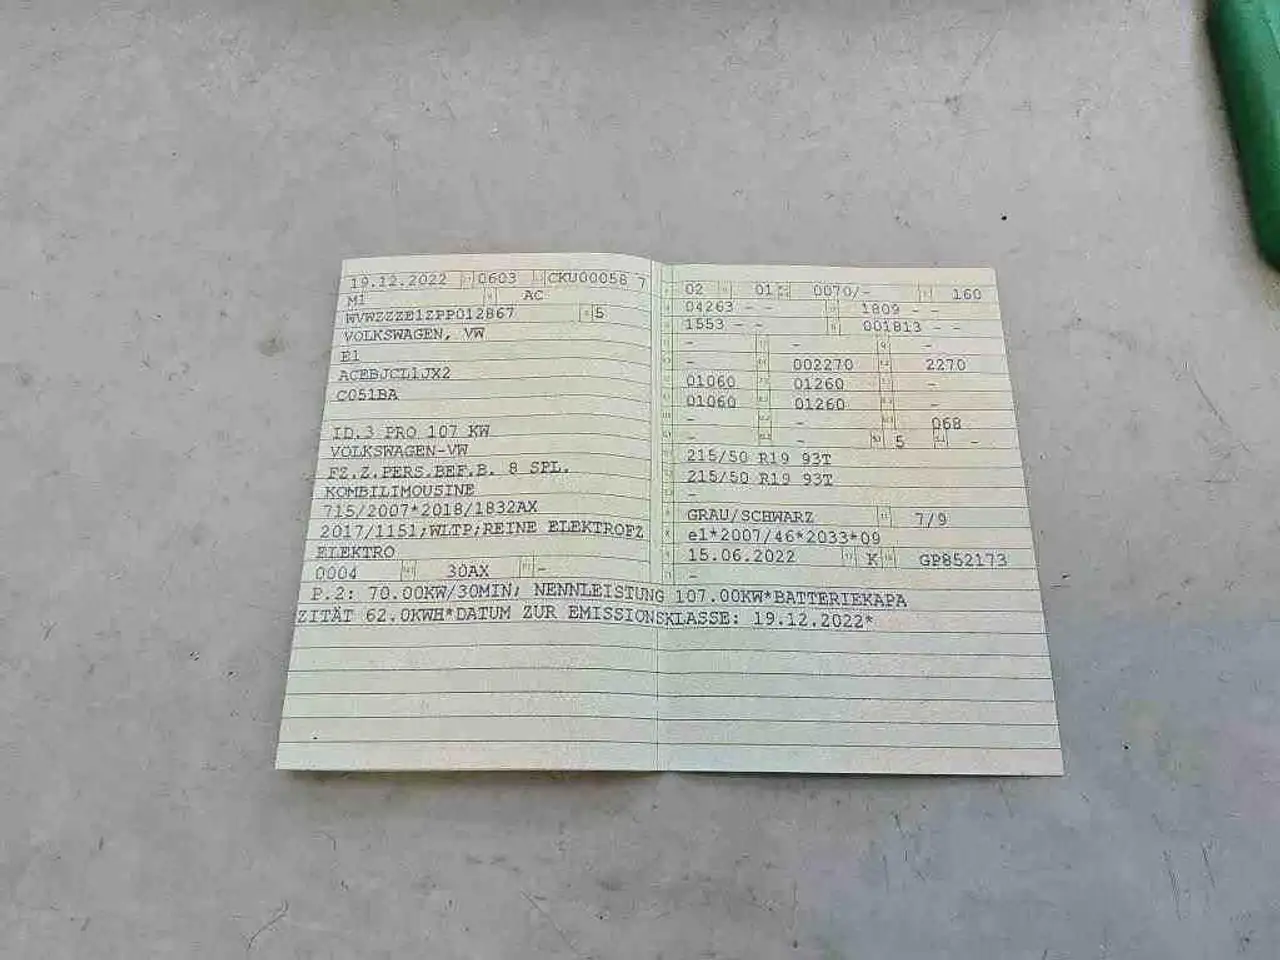 19.12.2022 0603 CKU00058 7
M1 AC
WVWZZZE1ZPP012867 5
VOLKSWAGEN, VW
E1
ACEBJCL1JX2
C051BA
ID.3 PRO 107 KW
VOLKSWAGEN-VW
FZ.Z.PERS.BEF.B. 8 SPL.
KOMBILIMOUSINE
715/2007*2018/1832AX
2017/1151;WLTP;REINE ELEKTROFZ
ELEKTRO
0004 30AX -
02 01 0070/- 160
04263 - - 1809 - -
1553 - - 001813 - -
- - -
- 002270 2270
01060 01260 -
01060 01260 -
- - 068
- - 5 -
215/50 R19 93T
215/50 R19 93T
-
GRAU/SCHWARZ 7/9
e1*2007/46*2033*09
15.06.2022 K GP852173
-
P.2: 70.00KW/30MIN; NENNLEISTUNG 107.00KW*BATTERIEKAPA
ZITÄT 62.0KWH*DATUM ZUR EMISSIONSKLASSE: 19.12.2022*